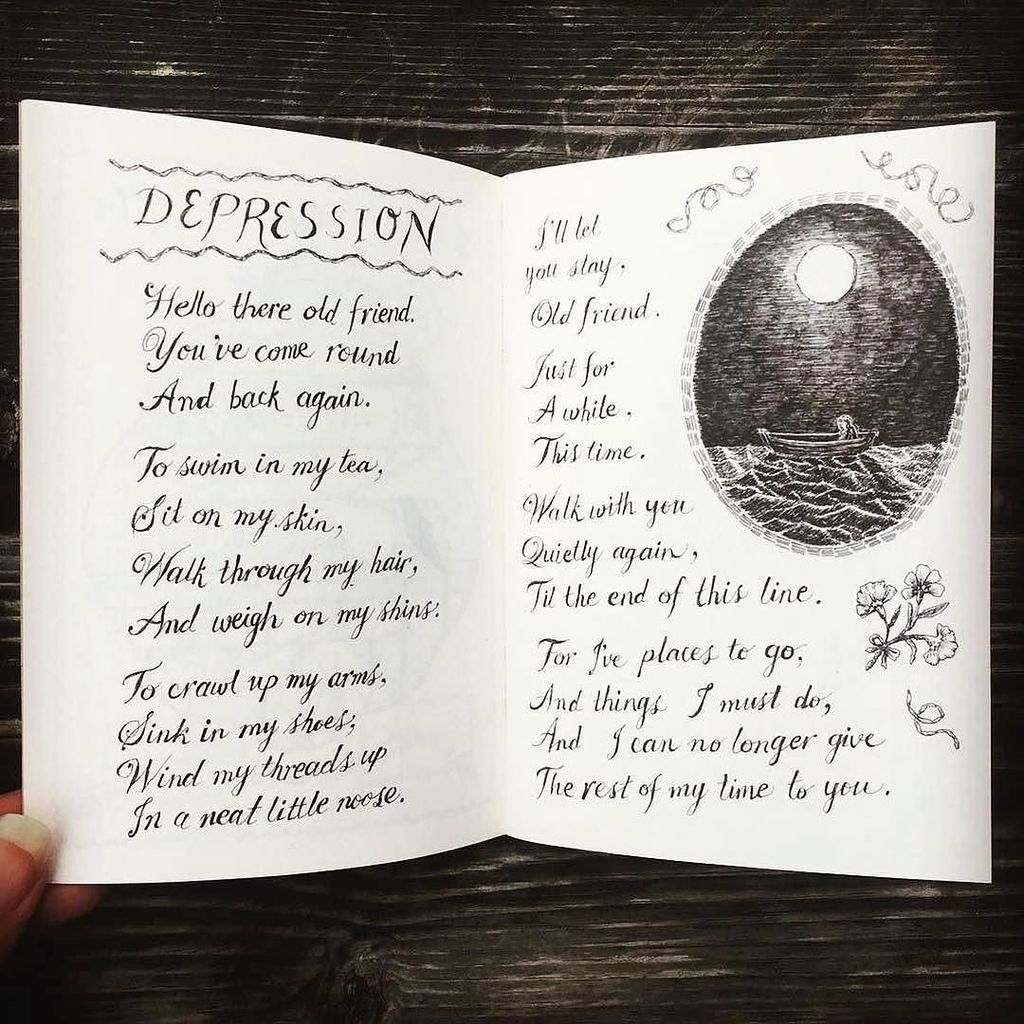 DEPRESSION
Hello there old friend.
You've come round
And back again.
To swim in my tea,
Sit on my skin,
Walk through my hair,
And weigh on my shins.
To crawl up my arms,
Sink in my shoes,
Wind my threads up
In a neat little noose.
I'll let
you stay,
Old friend.
Just for
A while,
This time.
Walk with you
Quietly again,
Til the end of this line.
For I've places to go,
And things I must do,
And I can no longer give
The rest of my time to you.